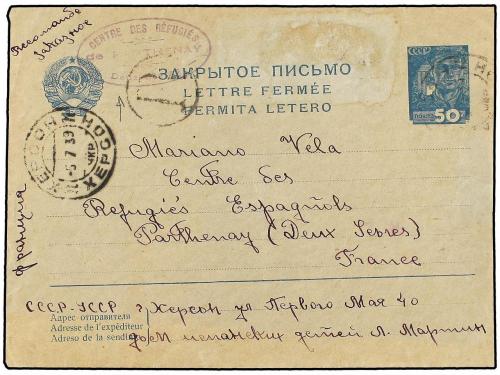 Recomandé
заказное
CENTRE DES RÉFUGIÉS
СССР
ЗАКРЫТОЕ ПИСЬМО
LETTRE FERMÉE
FERMITA LETERO
50
ХЕРСОН
5 7 39
УКР
ХЕРСОН
Mariano Vela
Centre des
Refugiés Espagnols
Parthenay (Deux Sevres)
France
франция
СССР-УССР г Херсон ул Первого Мая 40
Адрес отправителя
Adresse de l'expéditeur
Adreso de la sendinto
дом испанских детей Л. Мартин